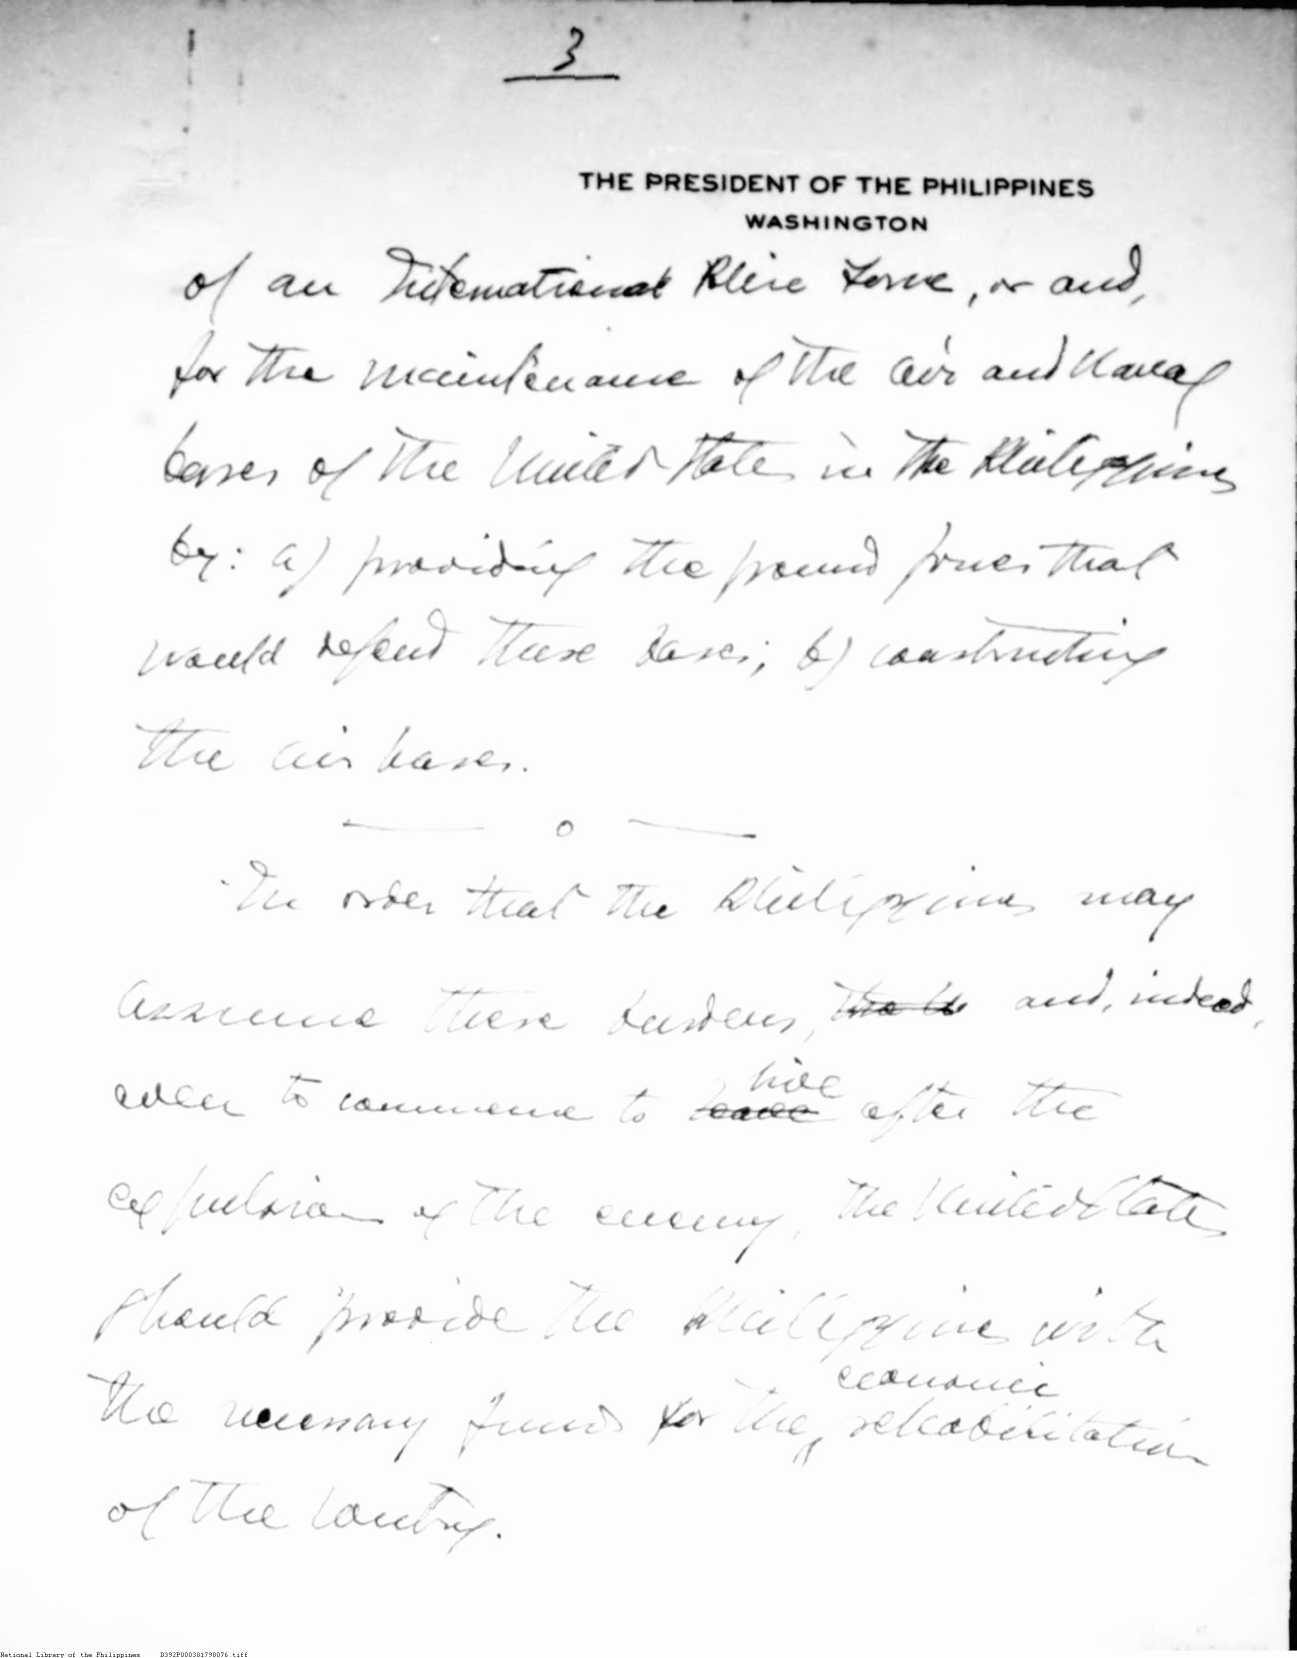 3
THE PRESIDENT OF THE PHILIPPINES
WASHINGTON
of an International Police Force, or and,
for the maintenance of the air and Naval
bases of the United States in the Philippines
by: a) providing the ground forces that
would defend these bases; b) constructing
the air bases.
In order that the Philippines may
assume these burdens, and, indeed,
even to commence to
live
after the
expulsion of the enemy, the United States
should provide the Philippines with
economic
the necessary funds for the rehabilitation
of the country.
National Library of the Philippines D392P000381798076.tiff